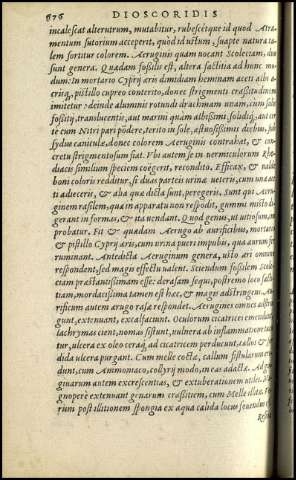 676 DIOSCORIDIS
incalescat alterutrum, mutabitur, rubescétque id quod Atra-
mentum sutorium acceperit, quòd id vstum, suapte natura ta-
lem sortitur colorem. Aeruginis quàm vocant Scoleciam, duo
sunt genera. Quædam fossilis est, altera factitia ad hunc mo-
dum: In mortario Cyprij æris dimidiam heminam aceti albi
acrisq́, pistillo cupreo conterito, donec strigmenti crassitu
imitetur: deinde aluminis rotundi drachmam vnam, cum sale
fossitij, translucentis, aut marini quàm albissimi, solidiq́, aut cer
tè cum Nitri pari põdere, terito in sole, æstuosissimis diebus, sub
sydus caniculæ, donec colorem Aeruginis contrahat, &
cretu strigmentosum fiat. Vbi autem se in vermiculorum Rho-
diacis similium speciem coëgerit, recondito. Efficax, &
boni coloris redditur, si duas partes vrinæ veteris, cum vna
ti adeceris, & alia quæ dicta sunt, peregeris. Sunt qui Aeru-
ginem rasilem, quæ in apparatu non respõdit, gummi misto di-
gerant in formas, & ita vendant. Quod genus, vt vitiosum,
probatur. Fit & quædam Aerugo ab aurificibus, mortario
& pistillo Cyprij æris, cum vrina pueri impubis, qua aurum fer
ruminant. Antedicta Aeruginum genera, vsto æri omnia
respondent, sed magis effectu valent. Sciendum fossilem
ciam præstantissimam esse: derasam sequi, postremo loco
tiam, mordacissima tamen est hæc, & magis adstringens.
rificum autem ærugo rasæ respondet. Aerugines omnes adstrin-
gunt, extenuant, excalfaciunt. Oculorum cicatrices emendant,
lachrymas cient, nomas sistunt, vulnera ab inflammatione
tur, vlcera ex oleo ceraq́, ad cicatricem perducunt, callos & sor-
dida vlcera purgant. Cum melle coctæ, callum fistularum
dunt, cum Ammoniaco, collyrij modo, in eas adactæ. Ad gin-
giuarum autem excrescentias, & extuberationem vtiles.
gnopere extenuant genarum crassitiem, cum Melle illitæ.
rum post illitionem spongia ex aqua calida locus fouendus